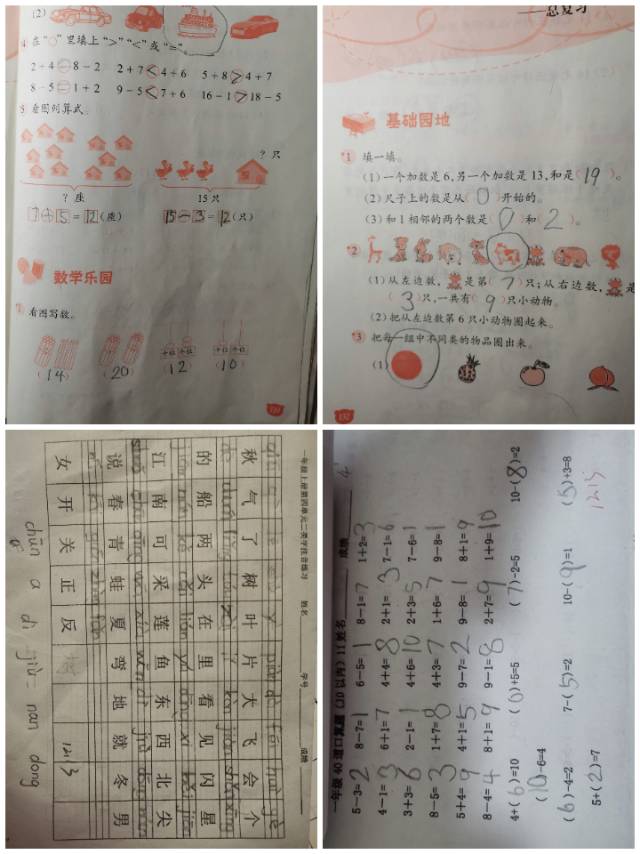 (2)
4 在“○”里填上“>”“<”或“=”。
2+4=8-2 2+7<4+6 5+8>4+7
8-5=1+2 9-5<7+6 16-1>18-5
5 看图列算式。
? 只
? 座 15 只
7+5=12(座) 15-3=12(只)
数学乐园
看图写数。
(14) (20) (12) (10)
总复习
基础园地
1 填一填。
(1)一个加数是 6,另一个加数是 13,和是(19)。
(2)尺子上的数是从(0)开始的。
(3)和 1 相邻的两个数是(0)和(2)。
2
(1)从左边数, 是第(7)只;从右边数, 是
(3)只,一共有(9)只小动物。
(2)把从左边数第 6 只小动物圈起来。
3 把每一组中不同类的物品圈出来。
(1)
132
一年级上册第四单元二类字注音练习 姓名 学号 成绩
秋 气 了 树 叶 片 大 飞 会 个
的 船 两 头 在 里 看 见 闪 星
江 南 可 采 莲 鱼 东 西 北 尖
说 春 青 蛙 夏 弯 地 就 冬 男
女 开 关 正 反
1213
chūn a di jiù nan dong
一年级 40 道口算题 (10 以内) 11 姓名 成绩
5-3=2 8-7=1 6-5=1 8-1=7 1+2=3
4-1=3 6+1=7 4+4=8 2+1=3 7-1=6
3+3=6 2-1=1 4+6=10 2+3=5 7-6=1
8-5=3 1+7=8 4+3=7 1+6=7 9-8=1
5+4=9 4+1=5 9-7=2 9-8=1 8+1=9
8-4=4 8+1=9 9-1=8 2+7=9 1+9=10
4+(6)=10 (0)+5=5 (7)-2=5 10-(8)=2
(10)-6=4
(6)-4=2 7-(5)=2 10-(9)=1 (5)+3=8
5+(2)=7
1213